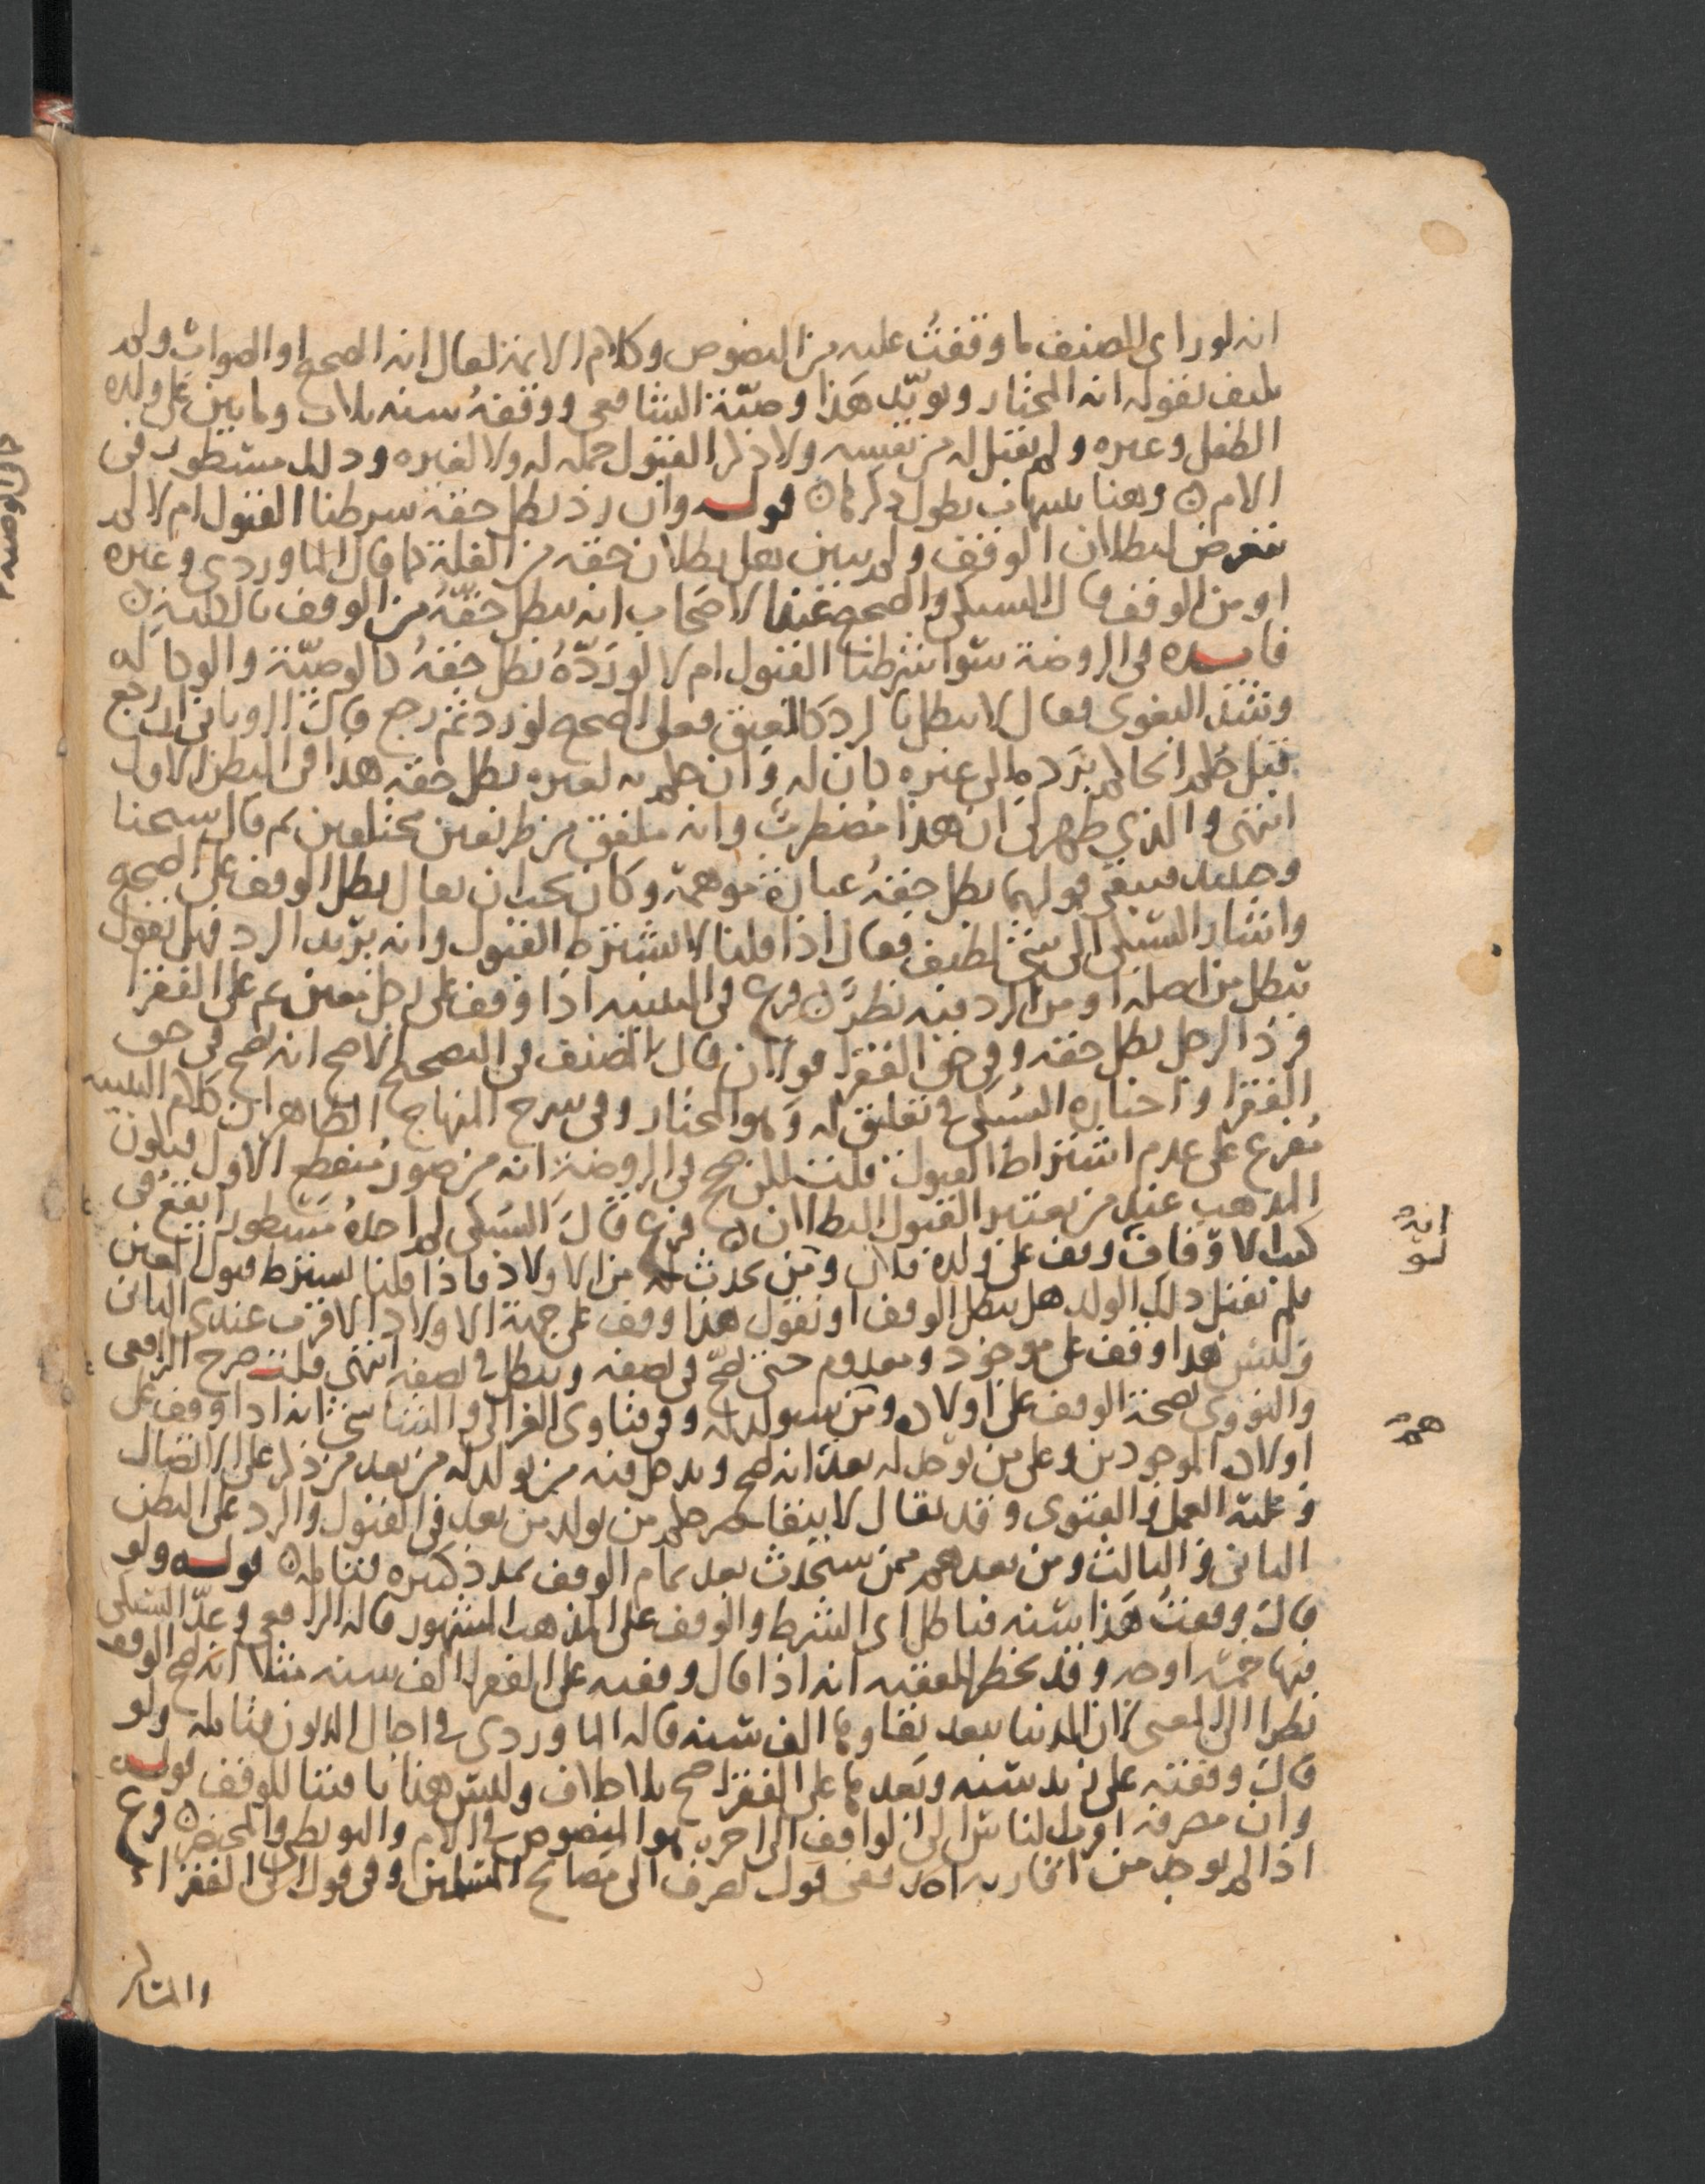 انه لو راى المصنف ما وقفت عليه من النصوص وكلام الائمة لقال انه الصحيح او الصواب ولم
يكتف بقوله انه المختار ويؤيد هذا وصية الشافعي ووقفه سنة ثلاث ومايتين على ولده
الطفل وغيره ولم يقبل له من نفسه ولا ذكر القبول جملة له ولا لغيره وذلك مسطور في
الام وهنا يطول ذكرها قوله وان رد بطل حقه شرطنا القبول ام لا لم
يتعرض لبطلان الوقف ولم يبين بعد بطلان حقه من الغلة كما قال الماوردي وغيره
او من الوقف قال السبكي والصحيح عند الاصحاب انه يبطل حقه من الوقف بالكلية
فايدة في الروضة سوا شرطنا القبول ام لا لو رده بطل حقه كالوصية والوكالة
وشذ البغوي فقال لا يبطل بالرد كالعتق فعلى الصحيح لو رد ثم رجع قال الروياني ان رجع
قبل حكم الحاكم برده الى غيره كان له وان حكم به لغيره بطل حقه هذا في البطن الاول
انتهى والذي ظهر لي ان هذا مضطرب وانه ملفق من طريقين مختلفين ثم قال شيخنا
وحينئذ فيبقى قولهما بطل حقه عبارة موهمة وكان يجب ان يقال بطل الوقف على الصحيح
واشار السبكي الى شي لطيف فقال اذا قلنا لا يشترط القبول وانه يرتد بالرد فهل نقول
يبطل من اصله او من الرد فيه نظر فرع في التنبيه اذا وقف على رجل معين ثم على الفقرا
فرد الرجل بطل حقه وفي حق الفقرا قولان قال المصنف في التصحيح الاصح انه يصح في حق
الفقرا واختاره السبكي في تعليق له وهو المختار وفي شرح المنهاج الظاهر ان كلام التنبيه
مفرع على عدم اشتراط القبول قلت لكن صحح في الروضة انه من صور منقطع الاول فيكون
المذهب عند من يعتبر القبول البطلان فرع قال السبكي لم اجده مسطورا يقع في
كتب الاوقاف وقف على ولده فلان ومن يحدث له من الاولاد فاذا قلنا يشترط قبول المعين
فلم يقبل ذلك الولد هل يبطل الوقف او نقول هذا وقف على جهة الاولاد الاقرب عندي الثاني
وليس هذا وقف على موجود ومعدوم حتى يصح في نصفه ويبطل في نصفه انتهى قلت صرح الرافعي
والنووي بصحة الوقف على اولاده ومن سيولد له وفي فتاوى الغزالي والشاشي انه اذا وقف على
اولاده الموجودين وعلى من يوجد له بعد انه يصح ويدخل فيه من يولد له من بعد من ذكر على الاتصال
وعليه العمل والفتوى وقد يقال لا يتقاصر حكم من يولد من بعد في القبول والرد على البطن
الثاني والثالث ومن بعدهم ممن سيحدث بعد تمام الوقف بمدد كثيرة فتامله قوله ولو
قال وقفت هذا سنة فباطل اي الشرط والوقف على المذهب المشهور قاله الرافعي وعد السبكي
فيها خمسة اوجه وقد يخطر للفقيه انه اذا قال وقفته على الفقرا الف سنة مثلا انه يصح الوقف
نظرا الى المعنى لان الدنيا يبعد بقاوها الف سنة قاله الماوردي في اجال الديون فتامله ولو
قال وقفته على زيد سنة وبعدها على الفقرا صح بلا خلاف وليس هذا تاقيتا للوقف قوله
وان مصرفه اقرب الناس الى الواقف الى اخره هو المنصوص في الام والبويطي والمختصر فرع
اذا لم يوجد من اقاربه احد ففي قول يصرف الى مصالح المسلمين وفي قول الى الفقرا
انه
لو
هم
والمساكين